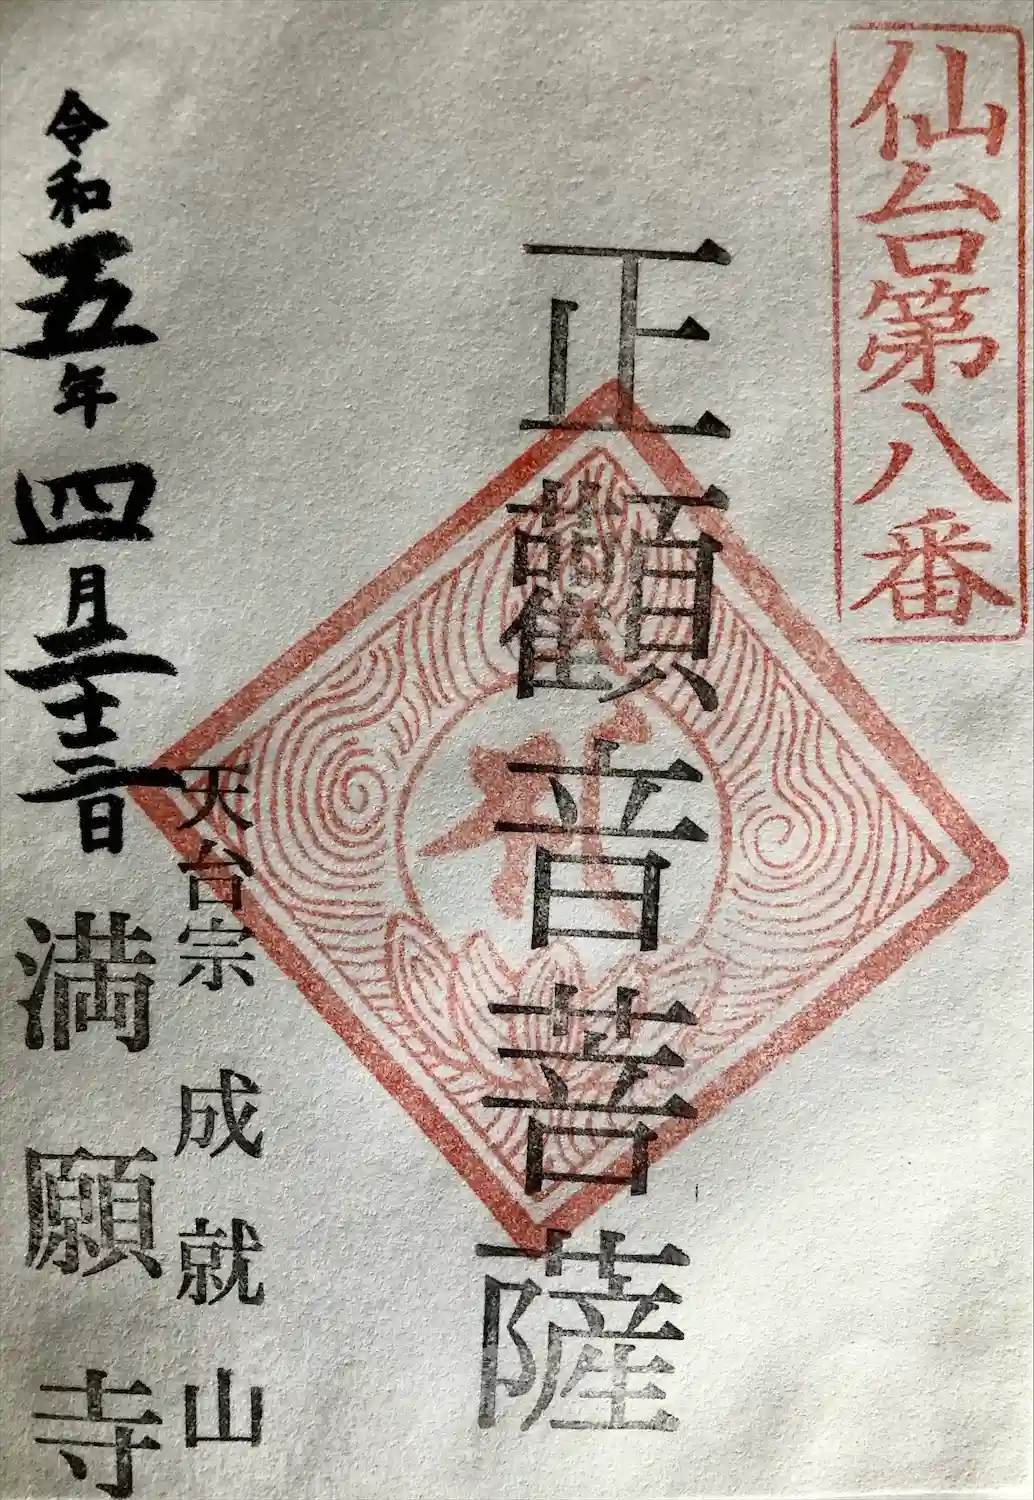 仙台第八番
正顴音菩薩
天台宗 成就山
令和五年四月二十三日 満願寺